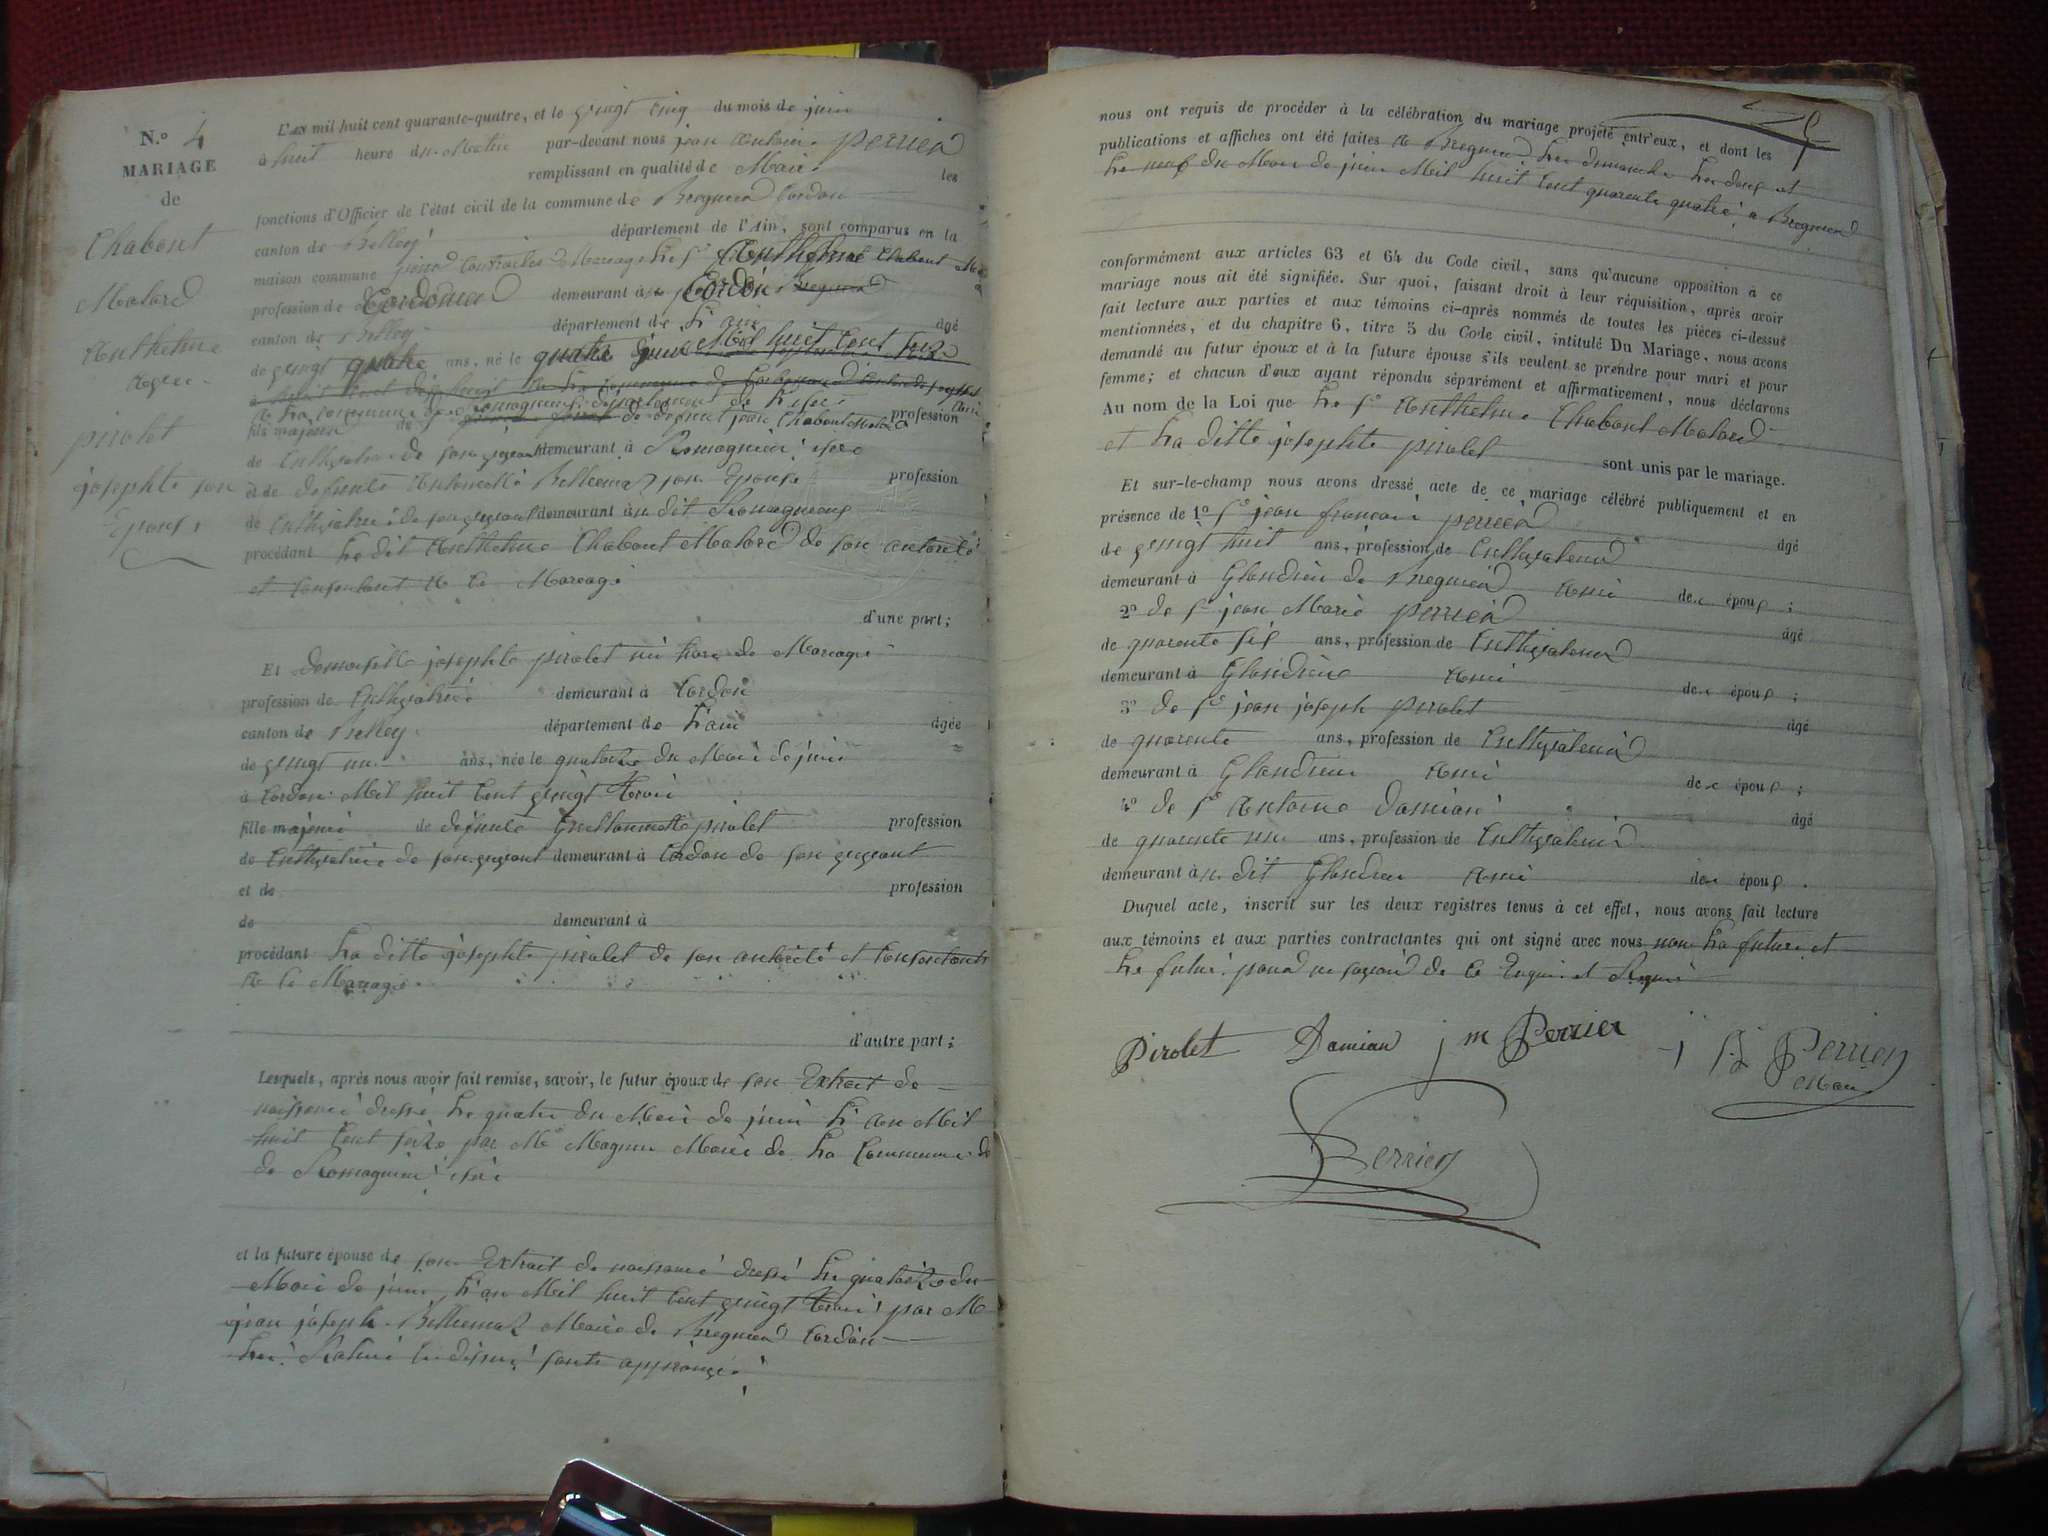 N.o 4
MARIAGE
de
Chabout
Malard
Anthelme
piolet
josephte son
Epouse
L'an mil huit cent quarante-quatre, et le vingt cinq du mois de juin
à huit heure du Matin par-devant nous jean Antoine Perrier
remplissant en qualité de Maire les
fonctions d'Officier de l'état civil de la commune de Bregnier Cordon
canton de Belley département de l'Ain, sont comparus en la
maison commune pour Contracter Mareage le Sr Anthelme Chabout
profession de Cordonier demeurant à Cordon Bregnier
canton de Belley département de L'ain âgé
de vingt quatre ans, né le quatre juin Mil huit Cent seize
fils majeur de defunt jean Chabout Malard profession
de Cultivateur de son vivant demeurant à Romagnieu isere
et de defunte Antoinette Billiemaz son Epouse profession
de Cultivatrice de son vivant demeurant au dit Romagnieu
procédant Le dit Anthelme Chabout Malard de son autorité
et Consentant a Ce Mareage
d'une part;
Et demoiselle josephte pirolet né hors de Mareage
profession de Cultivatrice demeurant à Cordon
canton de Belley département de L'ain âgée
de vingt un ans, née le quatorze du Mois de juin
à Cordon Mil huit Cent vingt trois
fille majeure de defunte pirolet profession
de Cultivatrice de son vivant demeurant à Cordon de son vivant
et de profession
de demeurant à
procédant La ditte josephte pirolet de son autorité et Consentante
a Ce Mareage
d'autre part;
Lesquels, après nous avoir fait remise, savoir, le futur époux de son Extrait de
naissance dressé Le quatre du Mois de juin L'an Mil
huit Cent seize par Mr Magnin Maire de La Commune de
de Romagnieu isere
et la future épouse de son Extrait de naissance dressé Le quatorze du
Mois de juin L'an Mil huit Cent vingt trois par M
jean joseph Billiemaz Maire de Bregnier Cordon
Les Rature Ci dessus sont approuvé
nous ont requis de procéder à la célébration du mariage projeté entr'eux, et dont les
publications et affiches ont été faites a Bregnier Les dimanche Le deux et
Le neuf du Mois de juin Mil huit Cent quarente quatre a Bregnier
conformément aux articles 63 et 64 du Code civil, sans qu'aucune opposition à ce
mariage nous ait été signifiée. Sur quoi, faisant droit à leur réquisition, après avoir
fait lecture aux parties et aux témoins ci-après nommés de toutes les pièces ci-dessus
mentionnées, et du chapitre 6, titre 5 du Code civil, intitulé Du Mariage, nous avons
demandé au futur époux et à la future épouse s'ils veulent se prendre pour mari et pour
femme; et chacun d'eux ayant répondu séparément et affirmativement, nous déclarons
Au nom de la Loi que Le Sr Anthelme Chabout Malard
et La ditte josephte pirolet sont unis par le mariage.
Et sur-le-champ nous avons dressé acte de ce mariage célébré publiquement et en
présence de 1o Sr jean françois perrier âgé
de vingt huit ans, profession de Cultivateur
demeurant à Glandieu de Bregnier Ami des époux;
2o de Sr jean Marie perrier âgé
de quarente six ans, profession de Cultivateur
demeurant à Glandieu Ami des époux;
3o de Sr jean joseph pirolet âgé
de quarente ans, profession de Cultivateur
demeurant à Glandieu Ami des époux;
4o de Sr Antoine Damian âgé
de quarente un ans, profession de Cultivateur
demeurant au dit Glandieu Ami des époux.
Duquel acte, inscrit sur les deux registres tenus à cet effet, nous avons fait lecture
aux témoins et aux parties contractantes qui ont signé avec nous non La future et
Le futur pour ne savoir de Ce Enquis et Requis
Pirolet Damian j m Perrier Perrier
Maire
Perrier